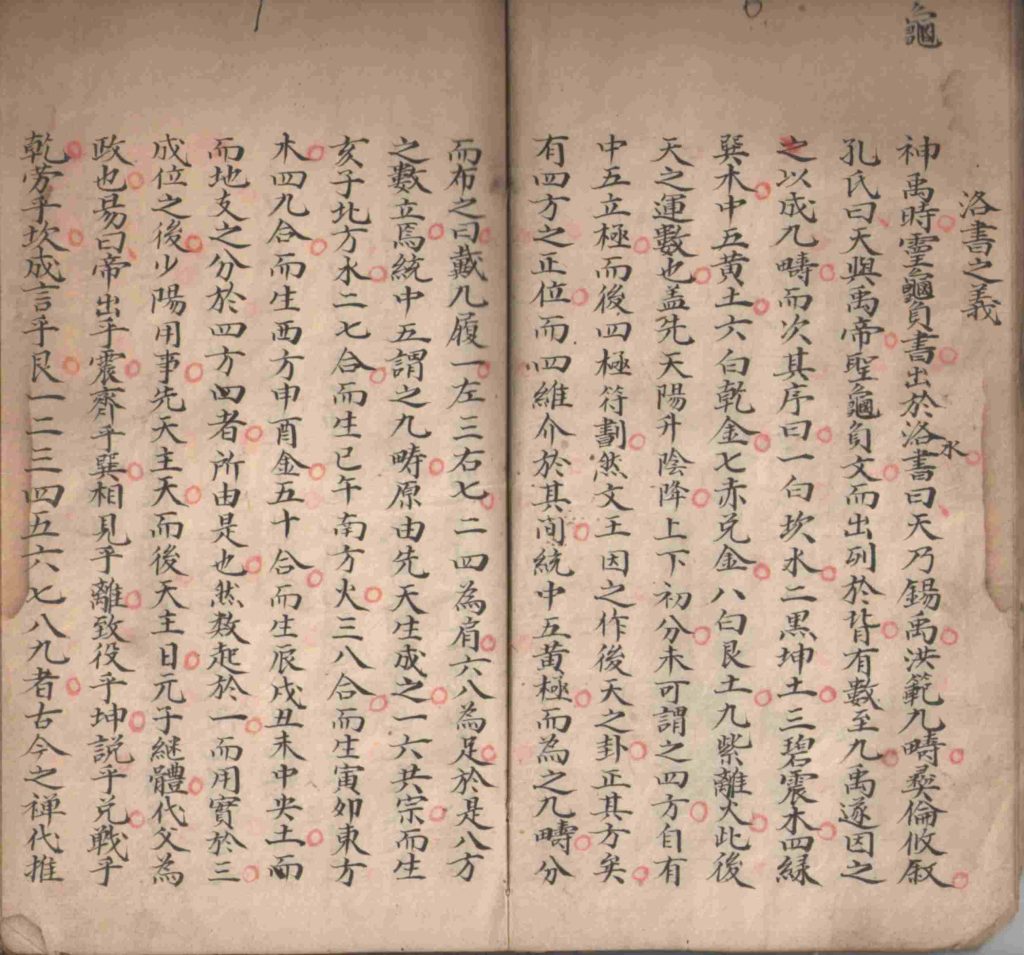 龜
洛書之義
神禹時靈龜負書出於洛水書曰天乃錫禹洪範九疇彞倫攸叙
孔氏曰天與禹帝聖龜負文而出列於背有數至九禹遂因之
之以成九疇而次其序曰一白坎水二黒坤土三碧震木四緑
巽木中五黄土六白乾金七赤兌金八白艮土九紫離火此後
天之運數也盖先天陽升陰降上下初分未可謂之四方自有
中五立極而後四極符劃然文王因之作後天之卦正其方矣
有四方之正位而四維介於其间統中五黄極而為之九疇分
而布之曰戴九履一左三右七二四為肩六八為足於是八方
之數立焉統中五謂之九疇原由先天生成之一六共宗而生
亥子北方水二七合而生巳午南方火三八合而生寅卯東方
木四九合而生西方申酉金五十合而生辰戌丑未中央土而
而地支之分於四方四者所由是也然数起於一而用實於三
成位之後少陽用事先天主天而後天主日元子継體代父為
政也易曰帝出乎震齊乎巽相見乎離致役乎坤説乎兌戰乎
乾劳乎坎成言乎艮一二三四五六七八九者古今之禅代推